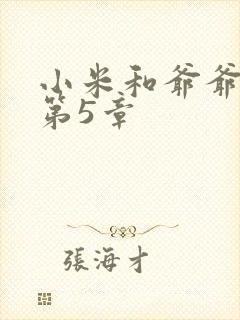 小米和爷爷
第5章
張海才